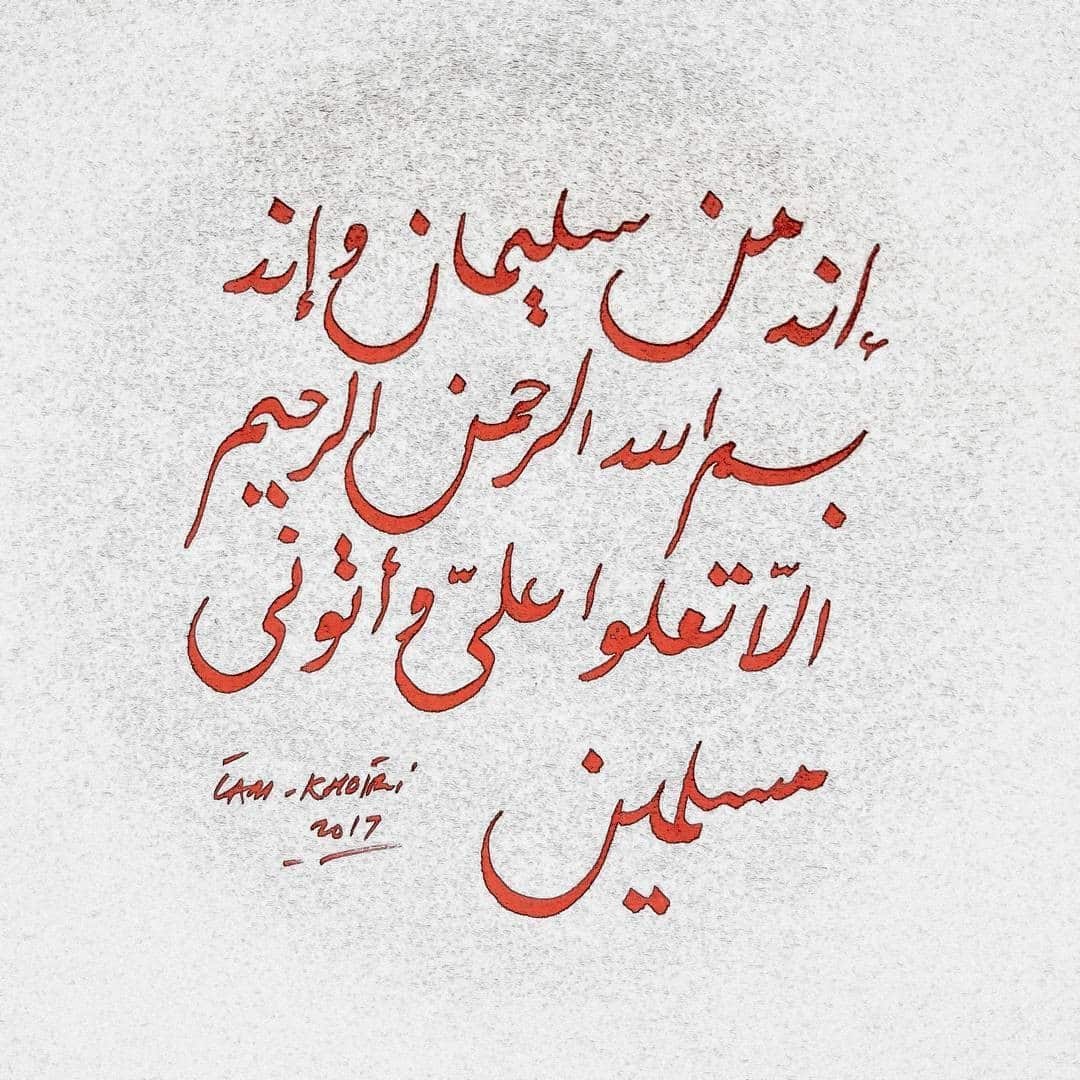 إنه من سليمان وإنه
بسم الله الرحمن الرحيم
الّا تعلوا عليّ وأتونى
مسلمين
LAM-KHOIRI
2017